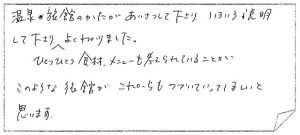 温泉や旅館のかたがあいさつして下さり いろいろ説明
して下さり よくわかりました。
ひとつひとつ食材、メニューも考えられていることが
このような旅館がこれからもつづいていってほしいと
思います。